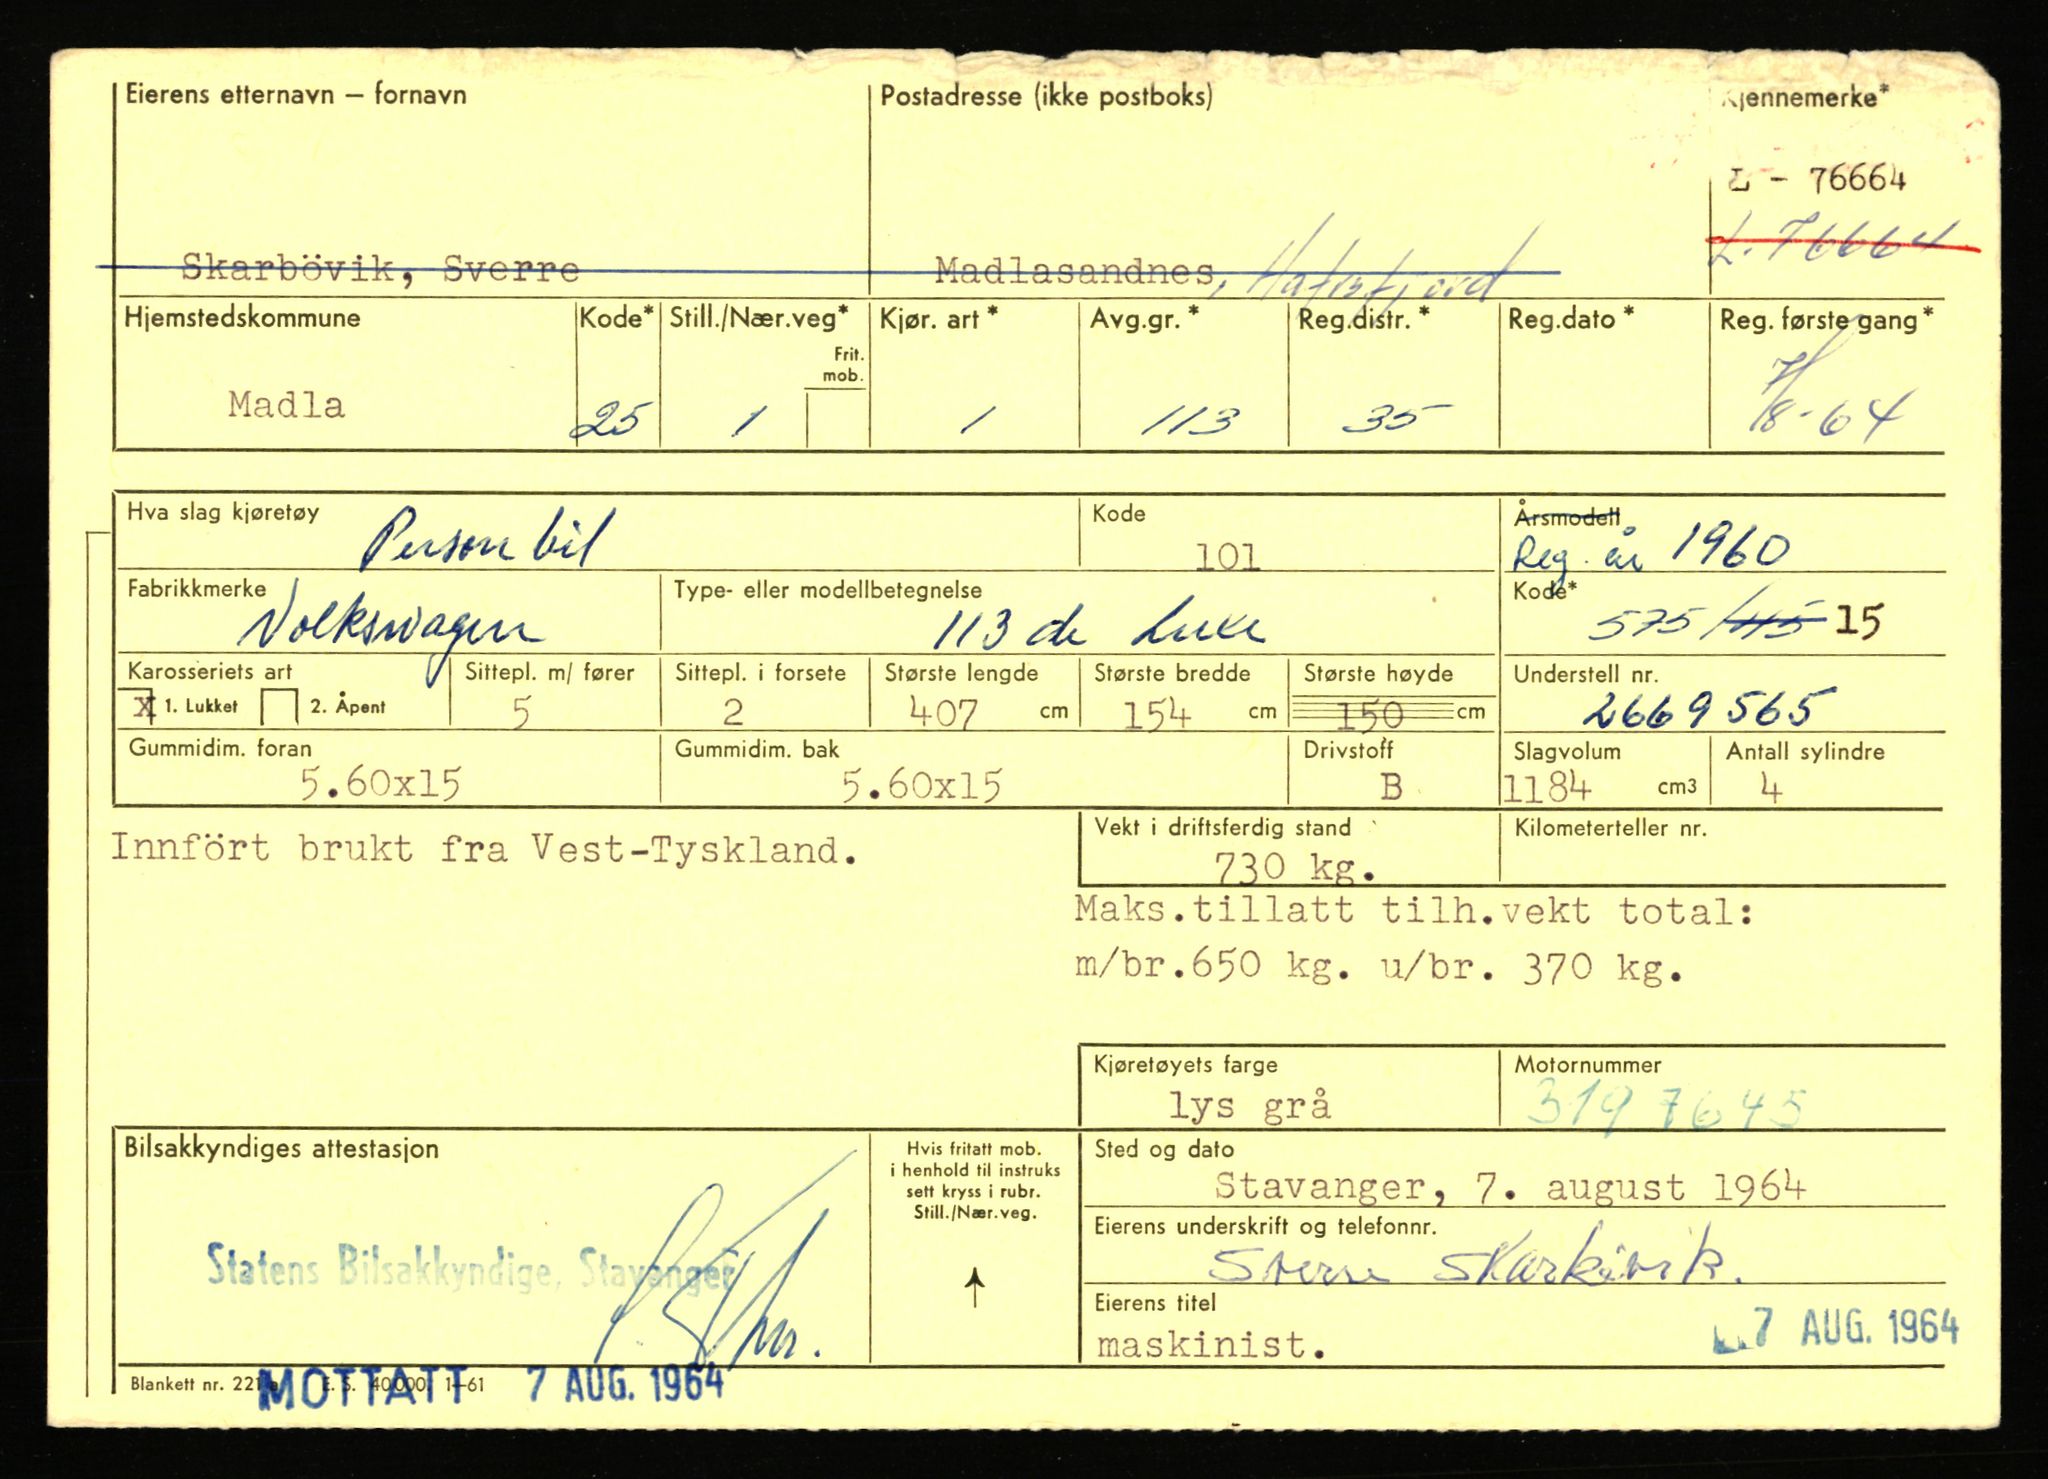 Eierens etternavn – fornavn Postadresse (ikke postboks) Kjennemerke*
L - 76664
L. 76664
Skarbövik, Sverre Madlasandnes, Hafrsfjord
Hjemstedskommune Kode* Still./Nær.veg* Kjør. art * Avg.gr. * Reg.distr. * Reg.dato * Reg. første gang *
Frit.
mob.
Madla 25 1 1 113 35 7/8-64
Hva slag kjøretøy Personbil Kode 101 Årsmodell
Reg. år 1960
Fabrikkmerke Volkswagen Type- eller modellbetegnelse 113 de Luxe Kode*
575 / 115 15
Karosseriets art Sittepl. m/ fører Sittepl. i forsete Største lengde Største bredde Største høyde Understell nr.
X 1. Lukket 2. Åpent 5 2 407 cm 154 cm 150 cm 2669565
Gummidim. foran Gummidim. bak Drivstoff Slagvolum Antall sylindre
5.60x15 5.60x15 B 1184 cm3 4
Innfört brukt fra Vest-Tyskland.
Vekt i driftsferdig stand Kilometerteller nr.
730 kg.
Maks.tillatt tilh.vekt total:
m/br.650 kg. u/br. 370 kg.
Kjøretøyets farge Motornummer
lys grå 3197645
Bilsakkyndiges attestasjon
Statens Bilsakkyndige, Stavanger
Hvis fritatt mob.
i henhold til instruks
sett kryss i rubr.
Still./Nær.veg.
Sted og dato
Stavanger, 7. august 1964
Eierens underskrift og telefonnr.
Sverre Skarbövik.
Eierens titel
maskinist.
7 AUG. 1964
Blankett nr. 221 a E. S. 40000. 1–61
MOTTATT 7 AUG. 1964